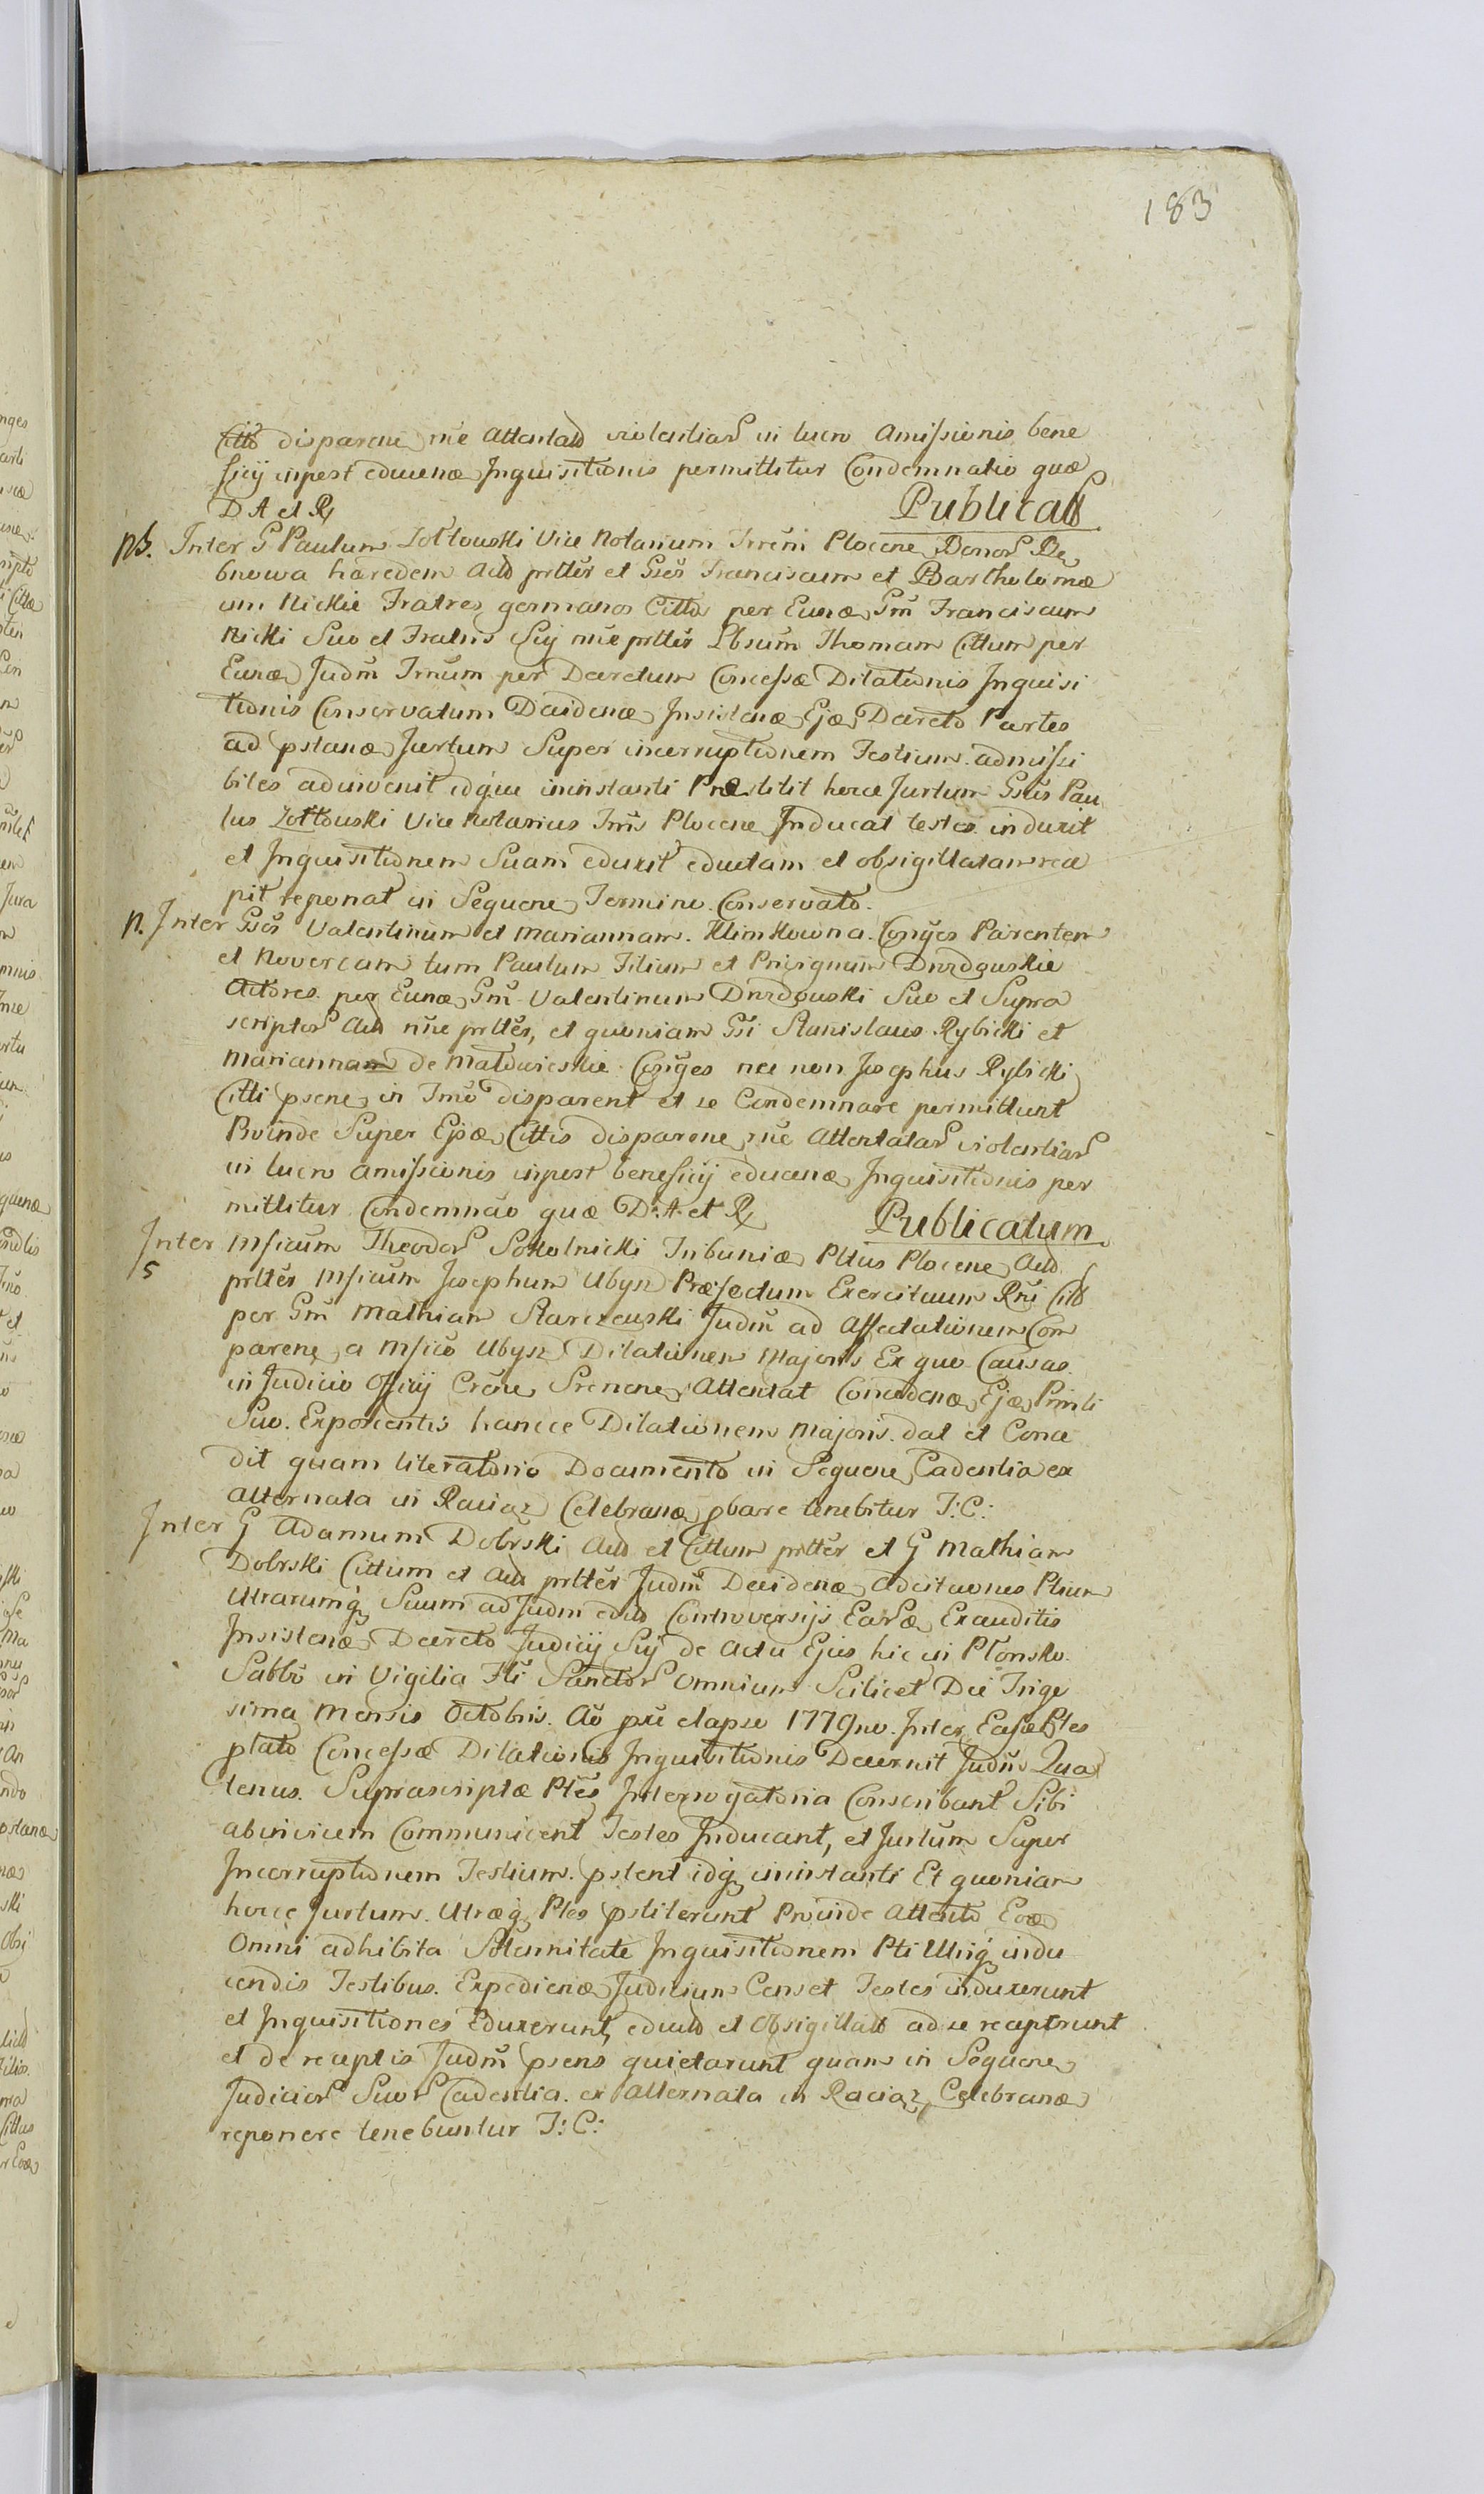 183
Citto disparene nne Attentato violentiar in lucro Amissionis bene
ficij inpost educenæ Inquisitionis permittitur Condemnatio quæ
D A et R Publicat
nb. Inter G Paulum Zołtowski Vice Notarium Trreni Plocene Bonor De
bnowa hæredem Act prttẽr et Gsẽs Franciscum et Bartholomæ
um Nickie Fratres germanos Citto per Eunæ Gm̃ Franciscum
Nicki Suo et Fratris Sij nne prttẽr Lbsum Thomam Cittum per
Eunæ Judm̃ Trnum per Decretum Concessæ Dilationis Inquisi
tionis Conservatum Decidenæ Insistenæ Ejæ Decreto Partes
ad pstanæ Jurtum Super incorruptionem Testium admissi
biles adinvenit idque ininstanti Præstitit hocce Jurtum Gsus Pau
lus Zołtowski Vice Notarius Trris Plocene Inducat testes induxit
et Inquisitionem Suam eduxit eductam et obsigillatam rece
pit reponat in Sequene Termino Conservato.
n. Inter Gsos Valentinum et Mariannam Klimkowna Conjges Parentem
et Novercam tum Paulum Filium et Privignum Drozdowskie
Actores per Eunæ Gm̃ Valentinum Drozdowski Suo et Supra
scriptor Act nne prttẽs, et quoniam Gsi Stanislaus Rybicki et
Mariannam de Małowieskie Conjges nec non Josephus Rybicki
Citti psene in Tmo disparent et se Condemnare permittunt
Proinde Super Ejsæ Cittis disparene nne Attentatar violentiar
in lucro amissionis inpost beneficij educenæ Inquisitionis per
mittitur Condemnão quæ D: A: et R Publicatum
Inter Mficum Theodor Sokolnicki Tribuniæ Pttus Plocene Act
5 prttẽr Mficum Josephum Ubysz Præfectum Exercituum Rni Citt
per Gm̃ Mathiam Starczewski Judm̃ ad Affectationem Com
parene a Mfico Ubysz Dilationem Majoris Ex quo Causas
in Judicio Officij Crene Srenene Attentat Concedenæ Ejæ Prinli
Suo Exponentis hancce Dilationem Majoris dat et Conce
dit quam literatorio Documento in Sequene Cadentia ex
alternata in Raciąz Celebranæ pbare tenebitur T: C:
Inter G Adamum Dobrski Act et Cittum prttẽr et G Mathiam
Dobrski Cittum et Act prttẽr Judm̃ Decidenæ adcitaones Ptium
Utrarumq Suum ad Judm edito Controversijs Earsæ Exauditis
Insistenæ Decreto Judicij Sij de Actu Ejus hic in Płonsko
Sabbo in Vigilia Fti Sanctor Omnium Scilicet Die Trige
sima Mensis Octobris Ao pxe elapso 1779no Inter Easæ Ptes
plato Concessæ Dilationis Inquisitionis Decernit Judm̃ Qua
tenus Suprascriptæ Ptẽs Interrogatoria Conscribant Sibi
abinvicem Communicent Testes Inducant, et Jurtum Super
Incorruptionem Testium pstent idq ininstanti Et quoniam
hocce Jurtum Utræq Ptes pstiterunt Proinde Attento Eoæ
Omni adhibita Solennitate Inquisitionem Pti Utriq indu
cendis Testibus Expedienæ Judicium Censet Testes induxerunt
et Inquisitiones Eduxerunt, educto et Obsigillato ad se receptrunt
et de receptis Judm̃ psens quietarunt quam in Sequene
Judicior Suor Cadentia ex alternata in Raciąz Celebranæ
reponere tenebuntur T: C: